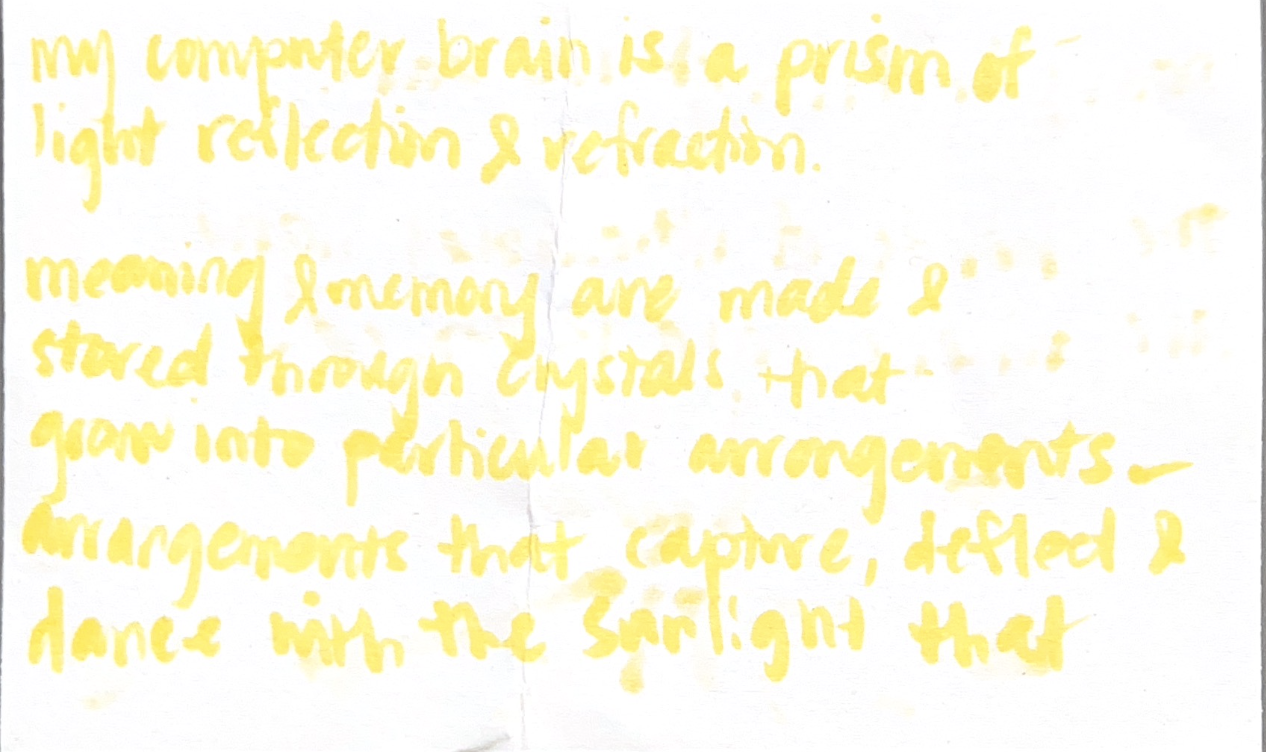 my computer brain is a prism of
light reflection & refraction.
meaning & memory are made &
stored through crystals that
grow into particular arrangements –
arrangements that capture, deflect &
dance with the sunlight that